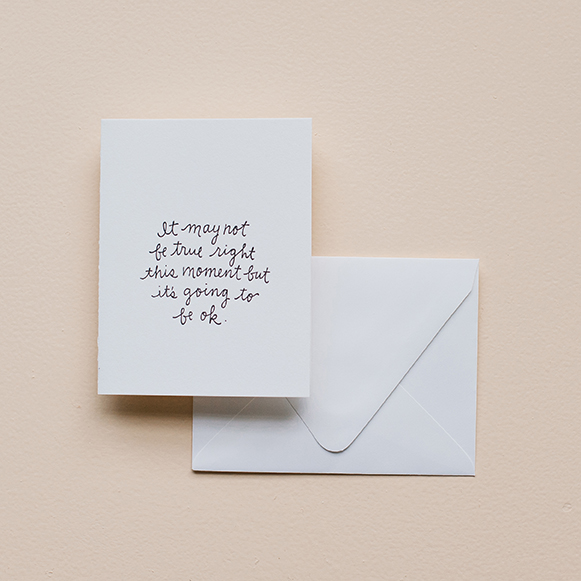 It may not
be true right
this moment but
it's going to
be ok.